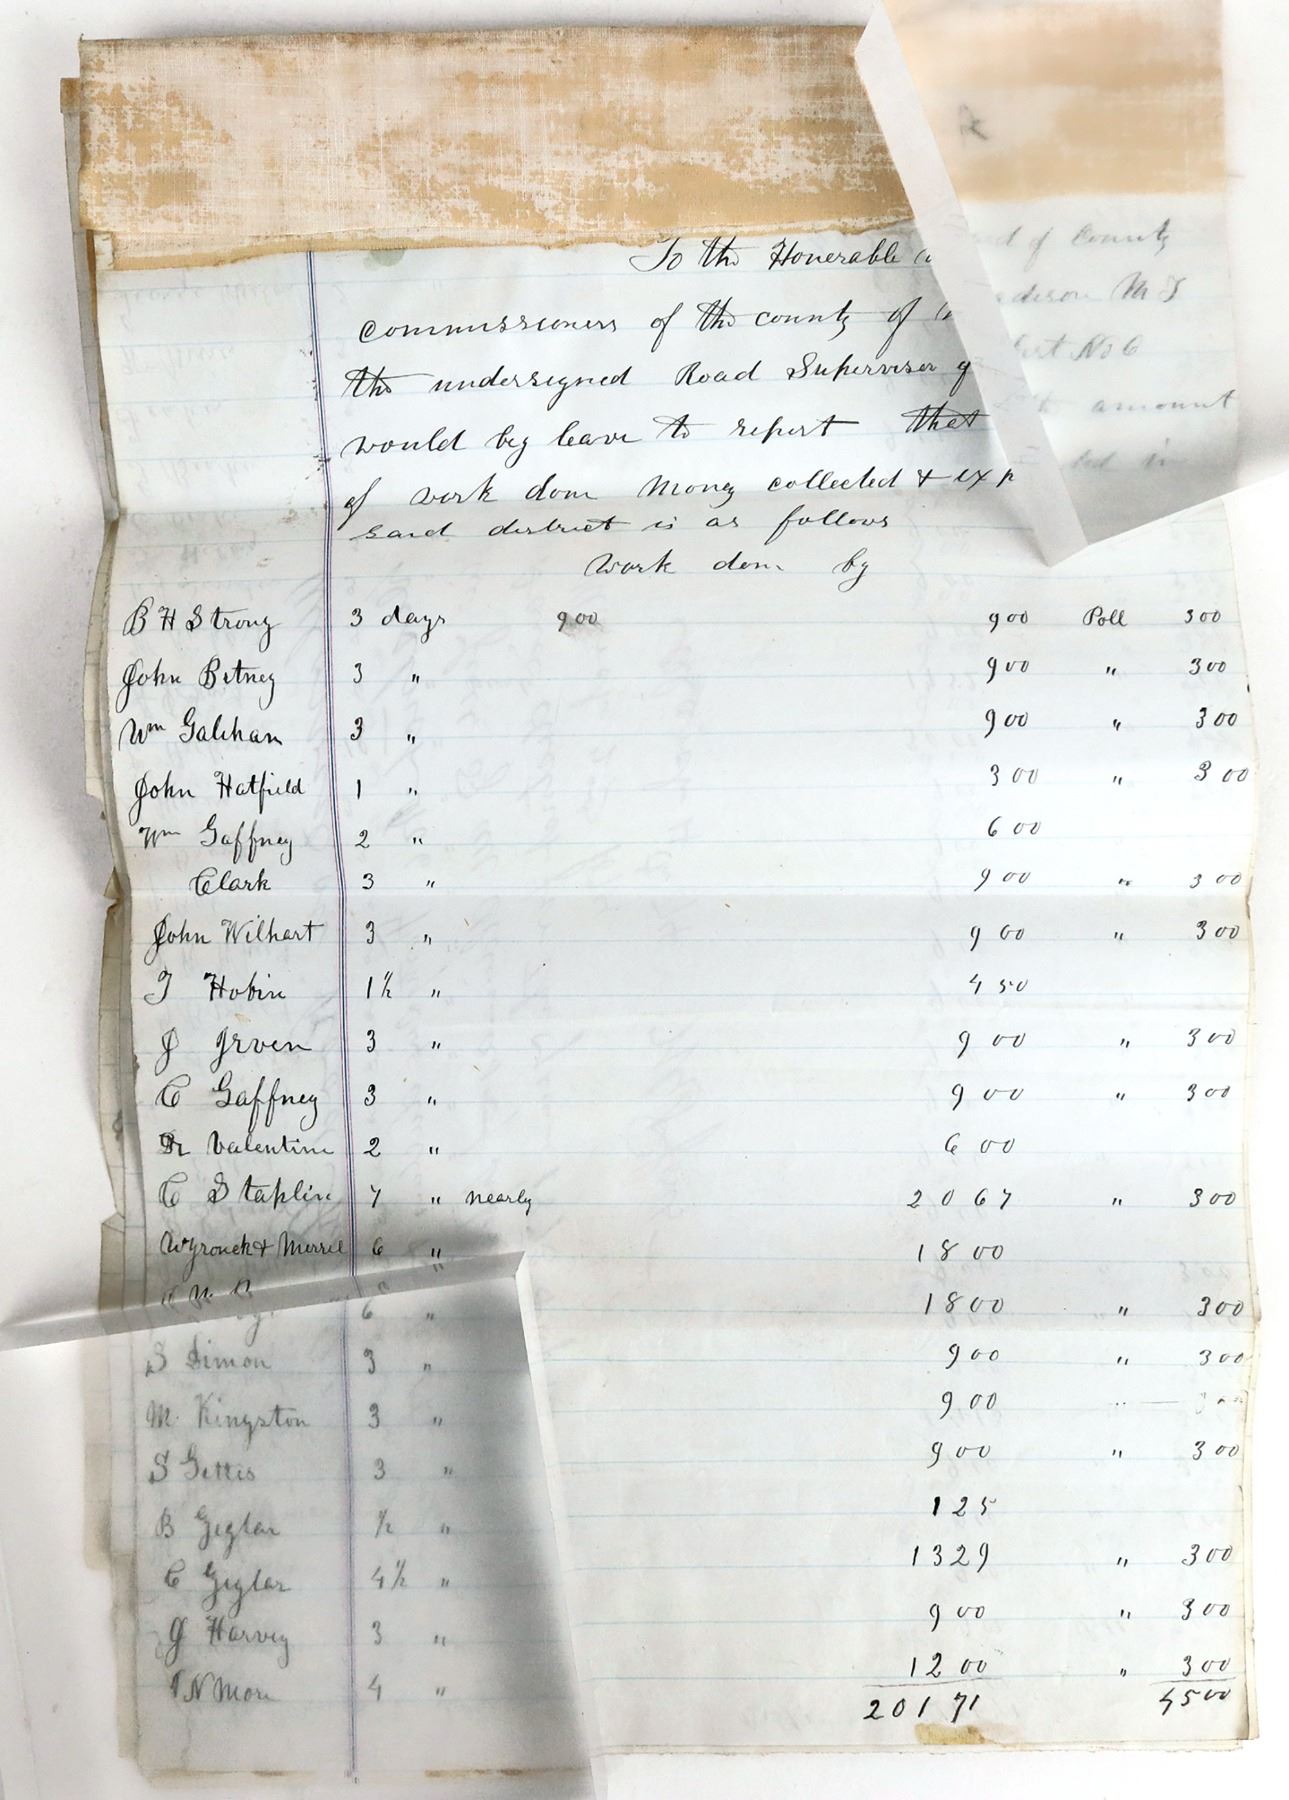 To the Honerable of County
commissioners of the county of M T
the undersigned Road Supervisor No 6
would beg leave to report that amount
of work done Money collected & in
said district is as follows
work done by
B H Strong 3 days 9 00 9 00 Poll 3 00
John Betney 3 " 9 00 " 3 00
Wm Galehan 3 " 9 00 " 3 00
John Hatfield 1 " 3 00 " 3 00
Wm Gaffney 2 " 6 00
Clark 3 " 9 00 " 3 00
John Wilhart 3 " 9 00 " 3 00
T Hobin 1 1/2 " 4 50
J Irven 3 " 9 00 " 3 00
C Gaffney 3 " 9 00 " 3 00
Dr Valentine 2 " 6 00
C Staplin 7 " nearly 20 67 " 3 00
Wyronck & Merrel 6 " 18 00
6 " 18 00 " 3 00
S Simon 3 " 9 00 " 3 00
M Kingston 3 " 9 00
S Gettis 3 " 9 00 " 3 00
B Geglar 1/2 " 1 25
C Geglar 4 1/2 " 13 29 " 3 00
J Harvey 3 " 9 00 " 3 00
N More 4 " 12 00 " 3 00
201 71 45 00